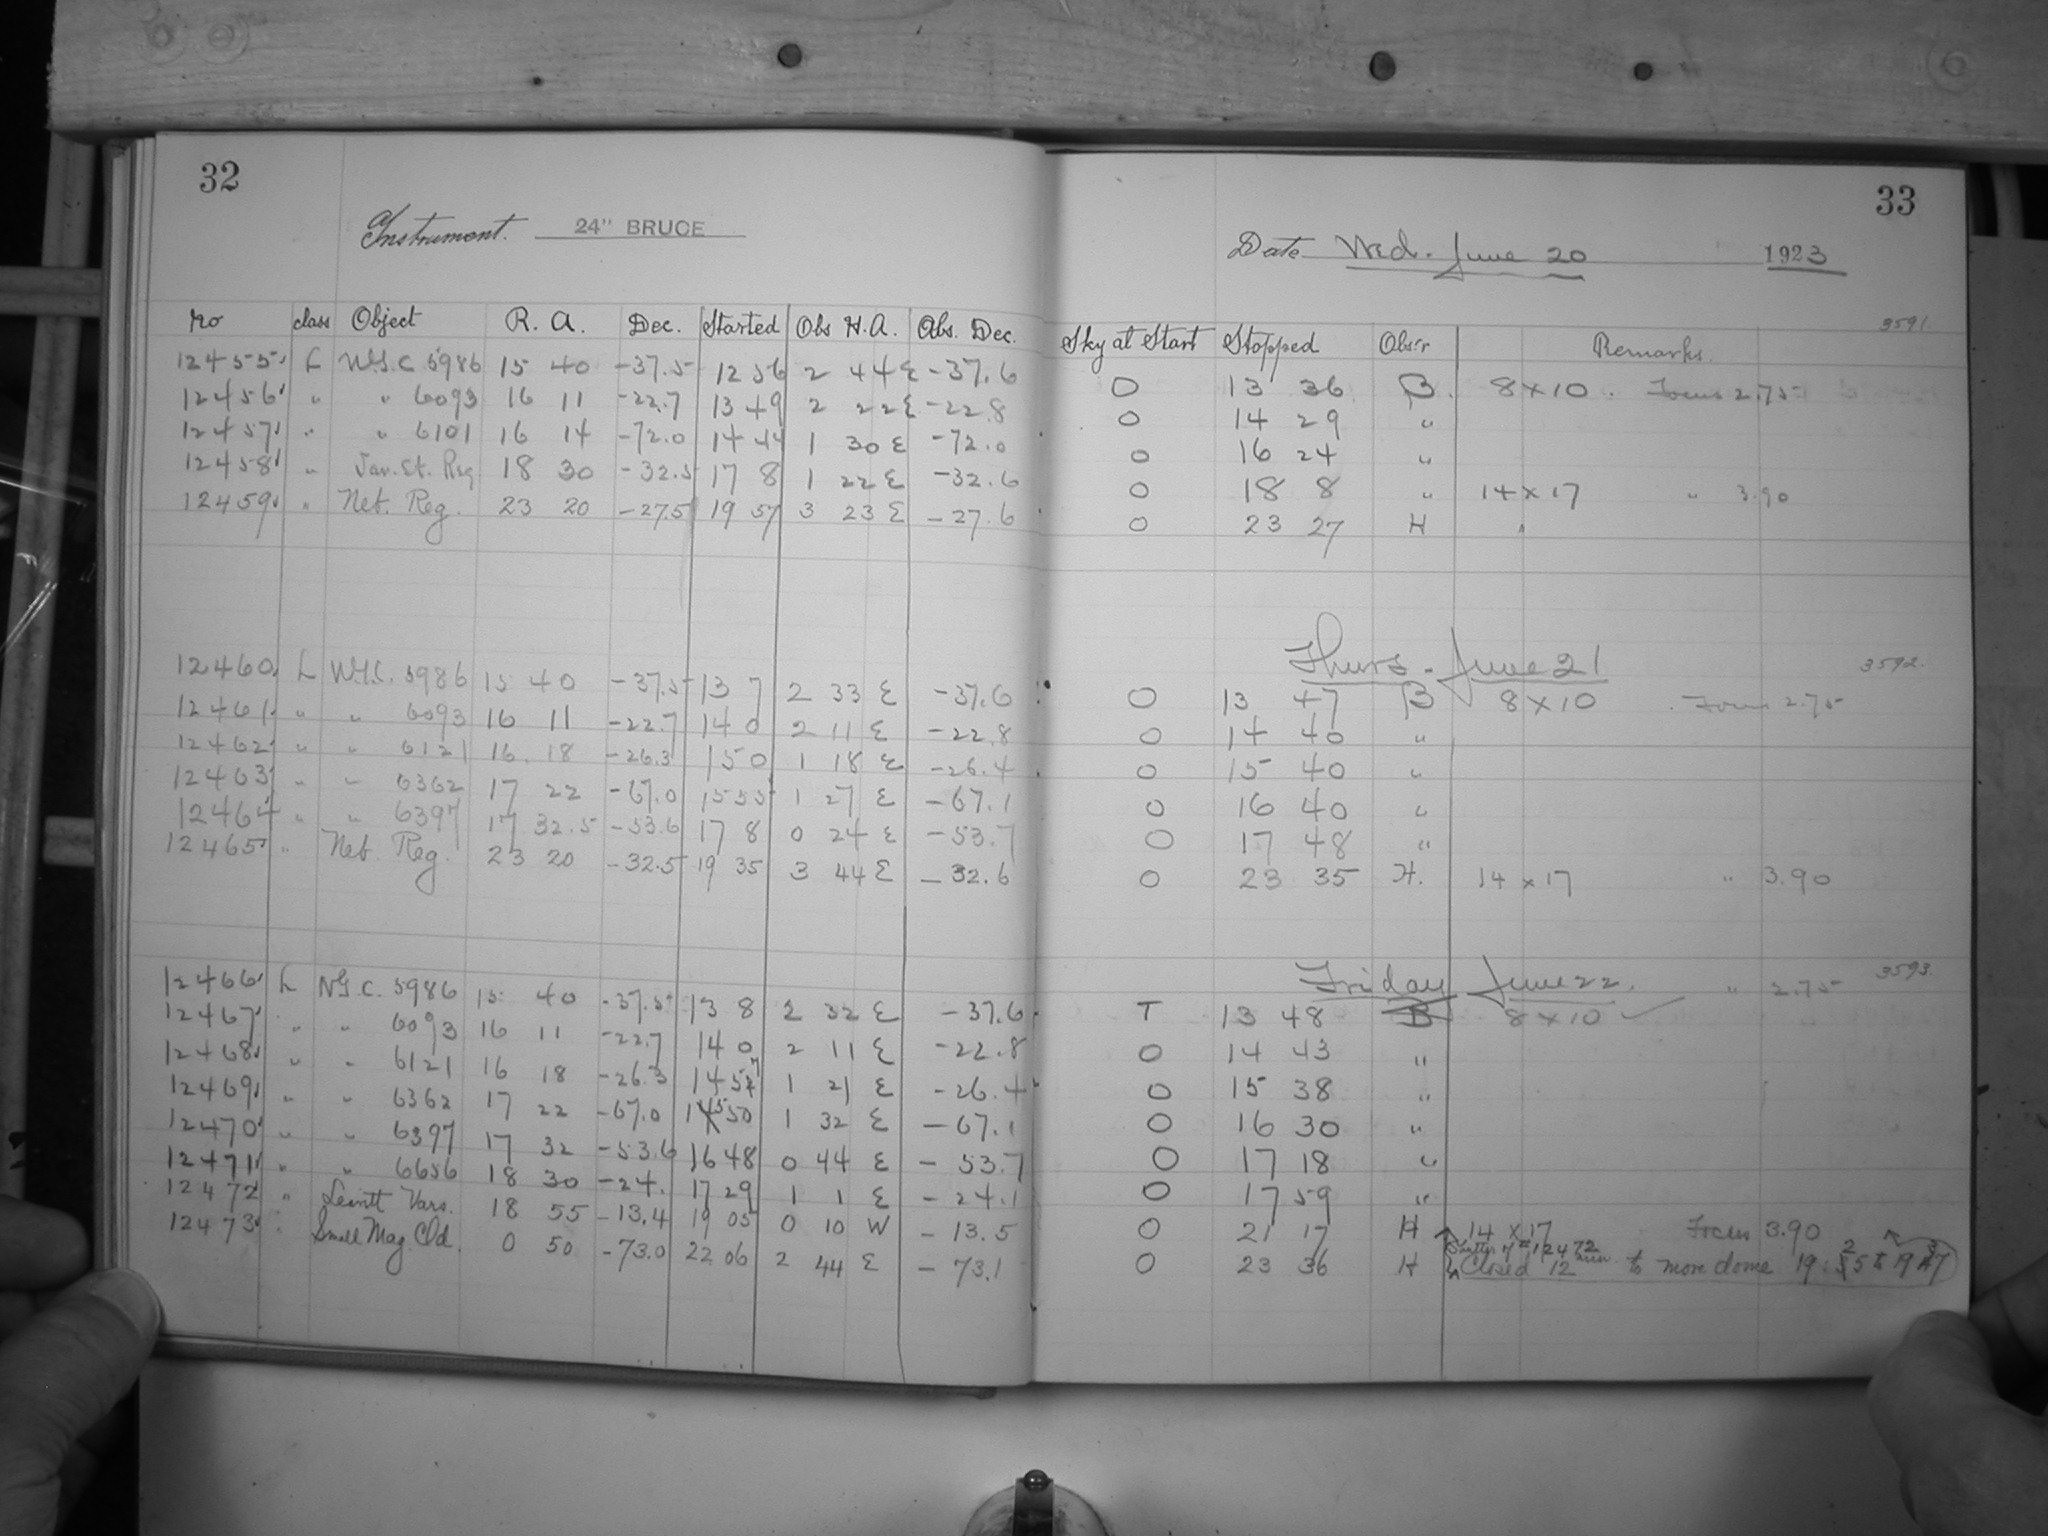 32
Instrument. 24" BRUCE
No class Object R. A. Dec. Started Obs H.A. Obs. Dec.
12455 L N.G.C 5986 15 40 -37.5 12 56 2 44 E -37.6
12456 " " 6093 16 11 -22.7 13 49 2 22 E -22.8
12457 " " 6101 16 14 -72.0 14 44 1 30 E -72.0
12458 " Var. St. Reg 18 30 -32.5 17 8 1 22 E -32.6
12459 " Neb. Reg. 23 20 -27.5 19 57 3 23 E -27.6
12460 L N.G.C. 5986 15 40 -37.5 13 7 2 33 E -37.6
12461 " " 6093 16 11 -22.7 14 0 2 11 E -22.8
12462 " " 6121 16 18 -26.3 15 0 1 18 E -26.4
12463 " " 6362 17 22 -67.0 15 55 1 27 E -67.1
12464 " " 6397 17 32.5 -53.6 17 8 0 24 E -53.7
12465 " Neb. Reg. 23 20 -32.5 19 35 3 44 E -32.6
12466 L N.G.C. 5986 15 40 -37.5 13 8 2 32 E -37.6
12467 " " 6093 16 11 -22.7 14 0 2 11 E -22.8
12468 " " 6121 16 18 -26.3 14 57 1 21 E -26.4
12469 " " 6362 17 22 -67.0 15 50 1 32 E -67.1
12470 " " 6397 17 32 -53.6 16 48 0 44 E -53.7
12471 " " 6656 18 30 -24. 17 29 1 1 E -24.1
12472 " Leavitt Vars. 18 55 -13.4 19 05 0 10 W -13.5
12473 " Small Mag. Cld. 0 50 -73.0 22 06 2 44 E -73.1
33
Date Wed. June 20 1923
3591
Sky at Start Stopped Obs'r Remarks.
O 13 36 B. 8 x 10. Focus 2.75
O 14 29 "
O 16 24 "
O 18 8 " 14 x 17 " 3.90
O 23 27 H "
Thurs. June 21 3592
O 13 47 B 8 x 10 . Focus 2.75
O 14 40 "
O 15 40 "
O 16 40 "
O 17 48 "
O 23 35 H. 14 x 17 " 3.90
Friday June 22. " 2.75 3593
T 13 48 B 8 x 10 ✓
O 14 43 "
O 15 38 "
O 16 30 "
O 17 18 "
O 17 59 "
O 21 17 H 14 x 17 Focus 3.90
Shutter of #12472
O 23 36 H Closed 12 min. to move dome 19:25 to 19 37